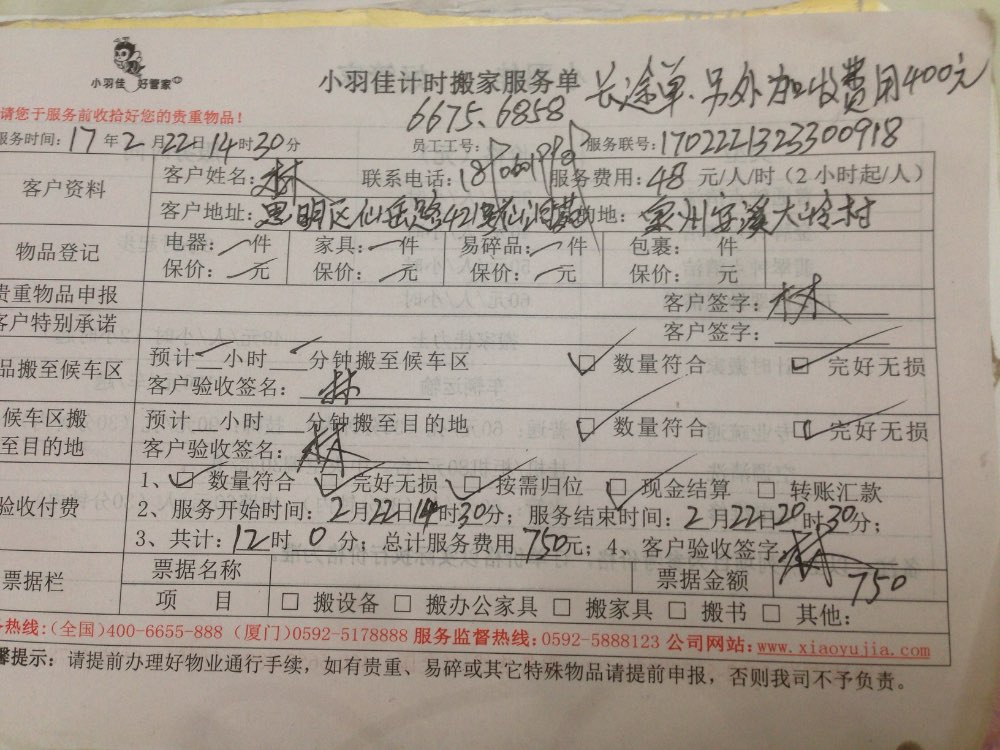 小羽佳 好管家
小羽佳计时搬家服务单 长途单.另外加收费用400元
请您于服务前收拾好您的贵重物品！ 6675、6858
服务时间：17年2月22日14时30分 员工工号： 服务联号：1702221323300918
客户资料 客户姓名：林 联系电话： 服务费用：48元/人/时（2小时起/人）
客户地址：思明区仙岳路421号 的地：泉州安溪大岭村
物品登记 电器：一件 家具：一件 易碎品：一件 包裹： 件
保价：一元 保价：一元 保价：一元 保价： 元
贵重物品申报 客户签字：林
客户特别承诺 客户签字：
品搬至候车区 预计 小时 分钟搬至候车区 ☑ 数量符合 ☑ 完好无损
客户验收签名：林
候车区搬至目的地 预计一小时 分钟搬至目的地 ☑ 数量符合 ☑ 完好无损
客户验收签名：林
验收付费 1、☑ 数量符合 ☑ 完好无损 ☑ 按需归位 ☑ 现金结算 □ 转账汇款
2、服务开始时间：2月22日14时30分；服务结束时间：2月22日20时30分；
3、共计：12时0分；总计服务费用750元；4、客户验收签字：林
票据栏 票据名称 票据金额 750
项 目 □ 搬设备 □ 搬办公家具 □ 搬家具 □ 搬书 □ 其他：
务热线：(全国)400-6655-888（厦门)0592-5178888 服务监督热线：0592-5888123 公司网站：www.xiaoyujia.com
馨提示：请提前办理好物业通行手续，如有贵重、易碎或其它特殊物品请提前申报，否则我司不予负责。